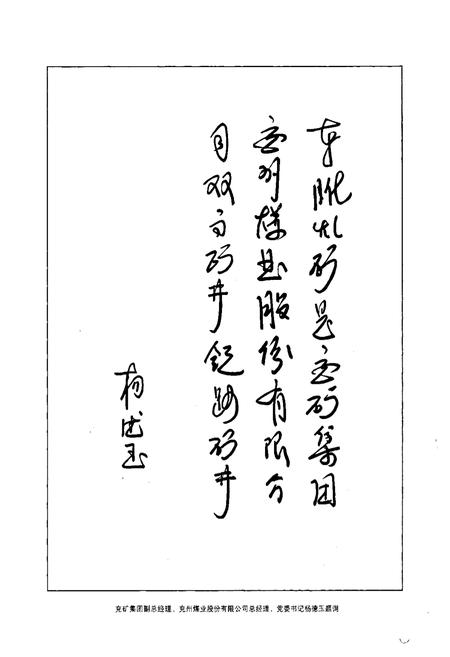 矿是兖矿集团
兖州煤业股份有限公
司双高矿井矿井
杨德玉
兖矿集团副总经理、兖州煤业股份有限公司总经理、党委书记杨德玉题词